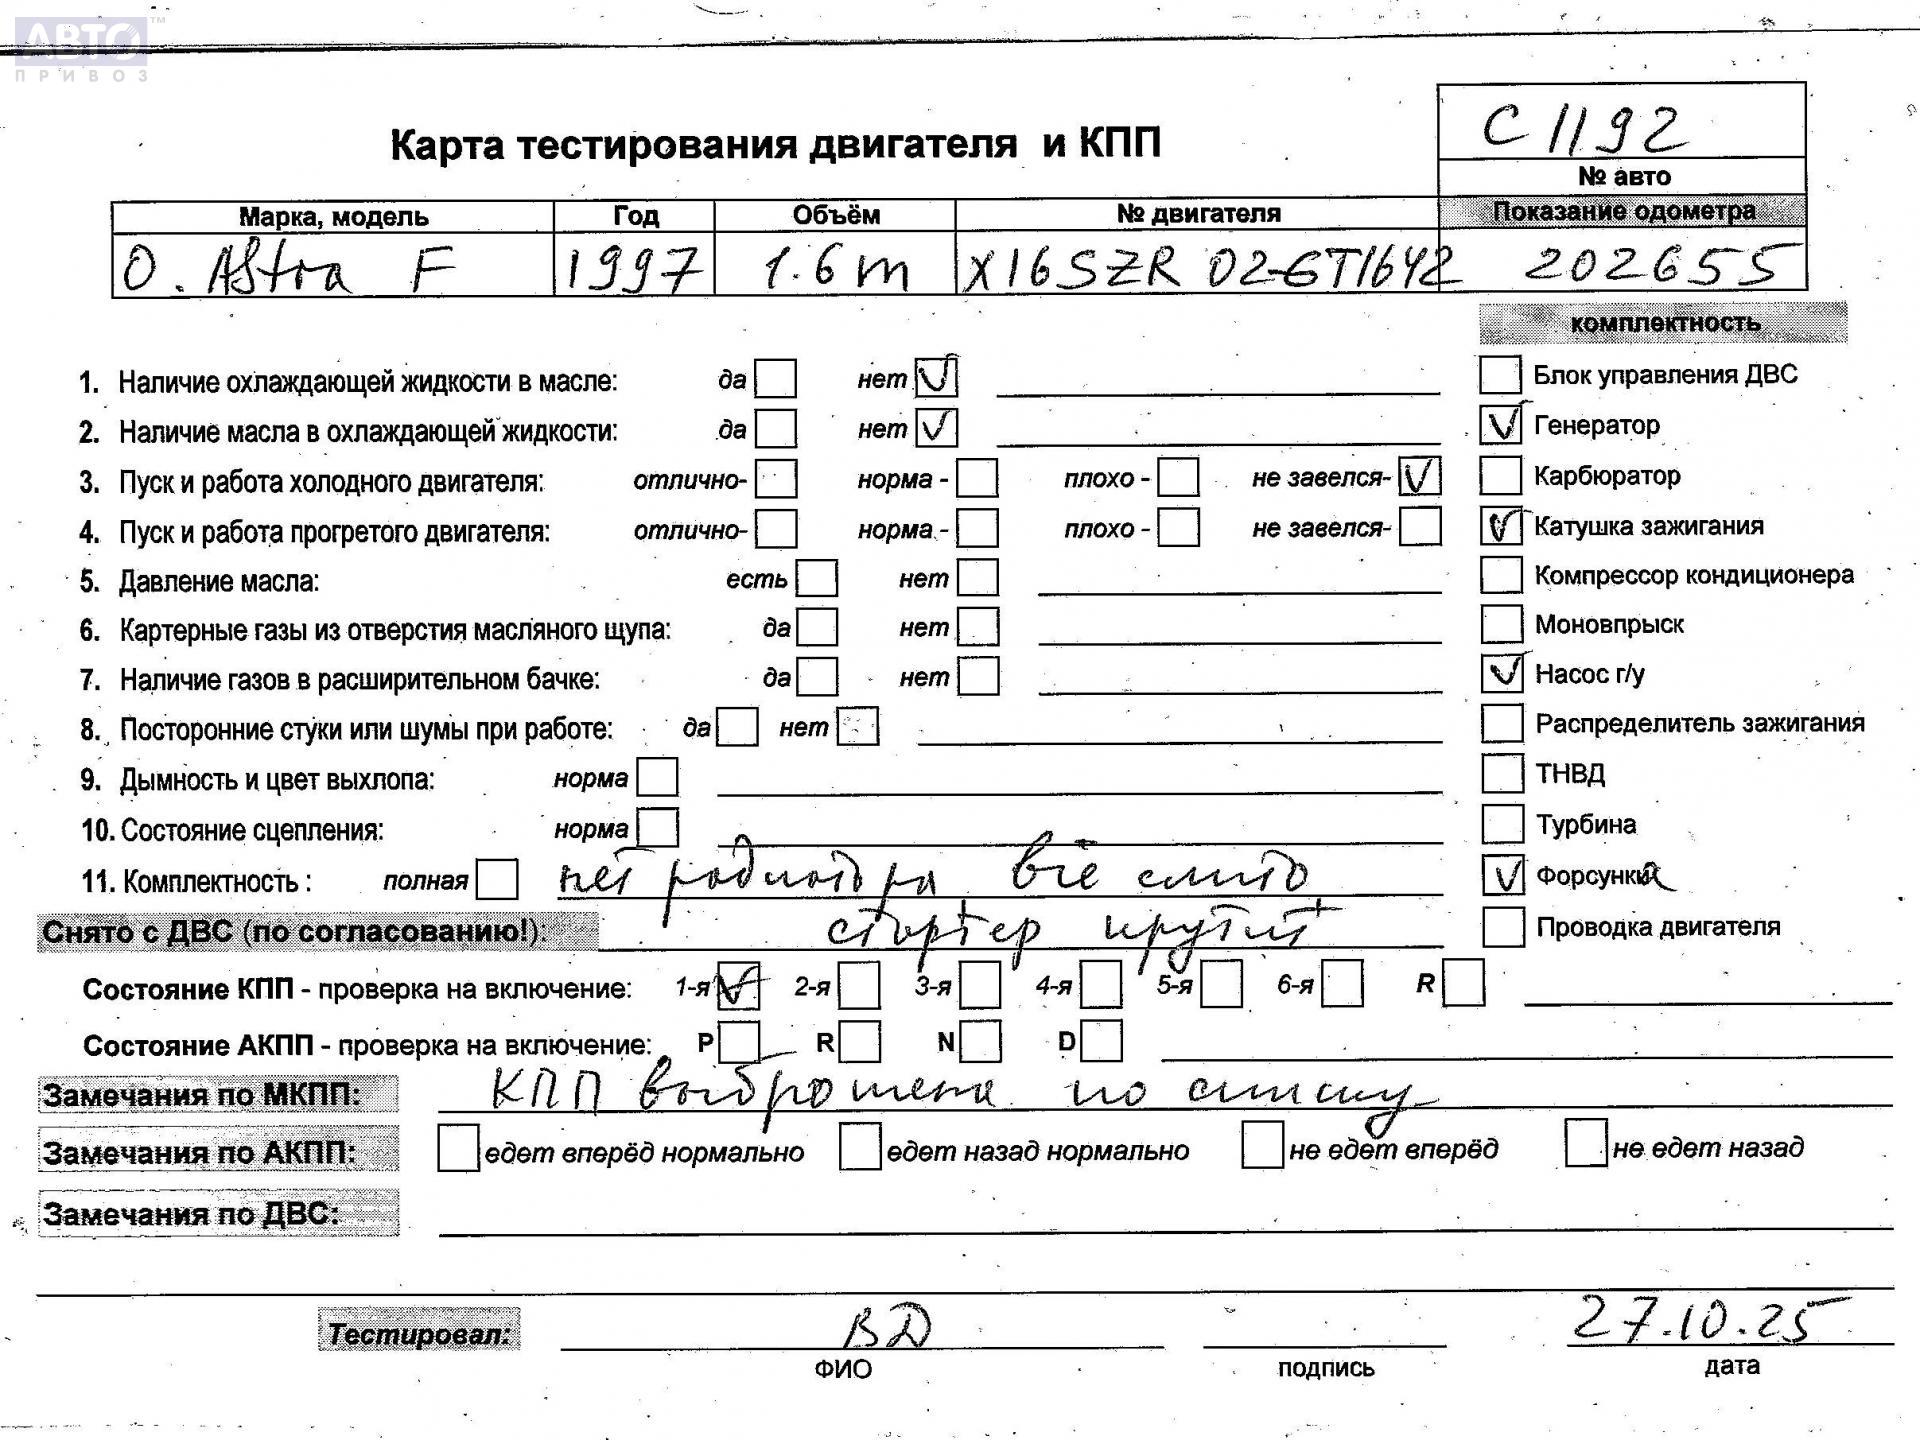 АВТО™
ПРИВОЗ
С 1192
Карта тестирования двигателя и КПП
№ авто
Марка, модель Год Объём № двигателя Показание одометра
O. Astra F 1997 1.6 m X16SZR 02-6T1642 202655
комплектность
1. Наличие охлаждающей жидкости в масле: да нет √ Блок управления ДВС
2. Наличие масла в охлаждающей жидкости: да нет √ √ Генератор
3. Пуск и работа холодного двигателя: отлично- норма - плохо - не завелся- √ Карбюратор
4. Пуск и работа прогретого двигателя: отлично- норма - плохо - не завелся- √ Катушка зажигания
5. Давление масла: есть нет Компрессор кондиционера
6. Картерные газы из отверстия масляного щупа: да нет Моновпрыск
7. Наличие газов в расширительном бачке: да нет √ Насос г/у
8. Посторонние стуки или шумы при работе: да нет Распределитель зажигания
9. Дымность и цвет выхлопа: норма ТНВД
10. Состояние сцепления: норма Турбина
11. Комплектность : полная нет радиатора всё слито √ Форсунки
Снято с ДВС (по согласованию!): стартер крутит Проводка двигателя
Состояние КПП - проверка на включение: 1-я √ 2-я 3-я 4-я 5-я 6-я R
Состояние АКПП - проверка на включение: P R N D
Замечания по МКПП: КПП выброшена по списку
Замечания по АКПП: едет вперёд нормально едет назад нормально не едет вперёд не едет назад
Замечания по ДВС:
Тестировал: ВД 27.10.25
ФИО подпись дата